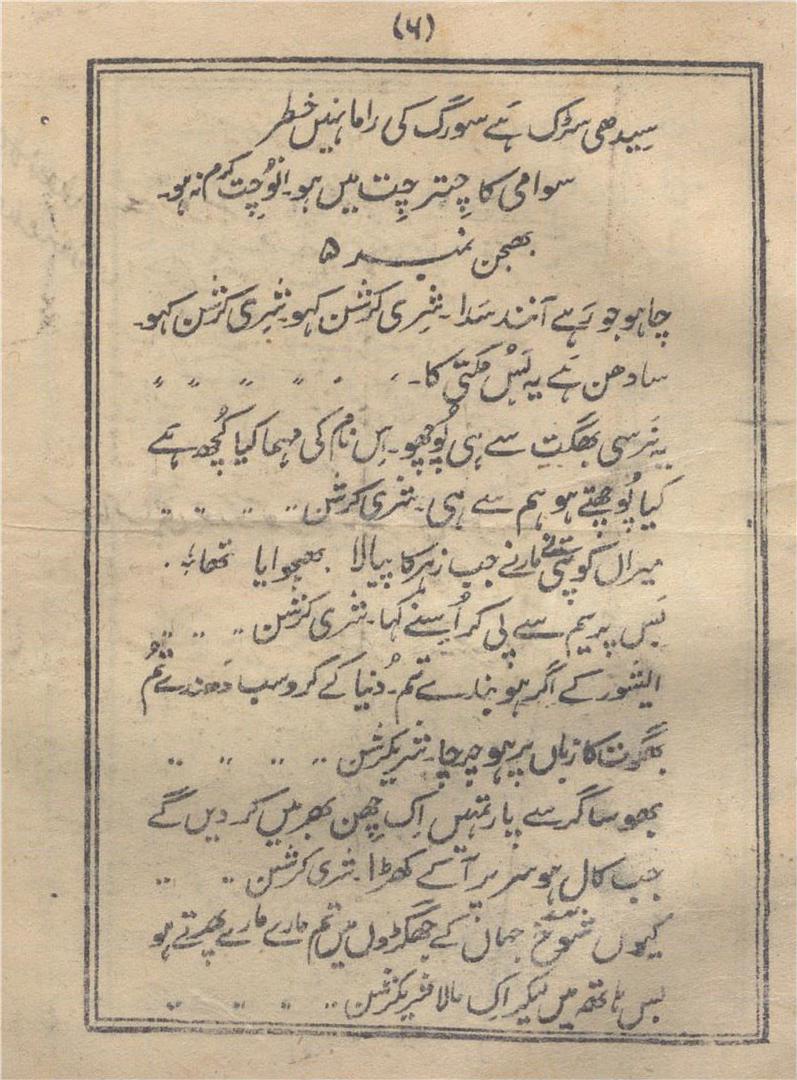 (۶)
سیدھی سڑک ہَے سورگ کی راما نہیں خطر
سوامی کا چِتر چِت میں ہو۔ انوُچِت کرم نہ ہو۔
بھجن نمبر ۵
چاہو جو رَہے آنند سَدا۔ شِری کرشن کہو۔ شِری کرشن کہو۔
سادھن ہَے یہ بَسْ مُکتی کا۔ ״ ״ ״ ״ ״
یہ نَرسی بھگت سے ہی پُوچھو۔ اِس نام کی مہما کیا کُچھ ہے
کیا پُوچھتے ہو ہم سے ہی۔ شری کرشن ״ ״ ״ ״
میراں کو ستی نے مارنے جب زہر کا پیالا بھجوایا تھا،
بَس پریم سے پی کر اُسنے کہا۔ شری کرشن ״ ״ ״
ایشور کے اگر ہو بندے تم۔ دُنیا کے کرو سب دَھندے تُم
بھگوت کا زباں پر ہو چرچا۔ شریکرشن ״ ״ ״ ״
بھوساگر سے پار تمہیں اِک چِھن بھر میں کر دیں گے
جب کال ہو سر پر آ کے کھڑا۔ شری کرشن ״ ״
کیوں شوخ جہاں کے جھگڑوں میں تم مارے مارے پھرتے ہو
بس ہاتھ میں لیکر اِک مالا شریکرشن ״ ״ ״ ״